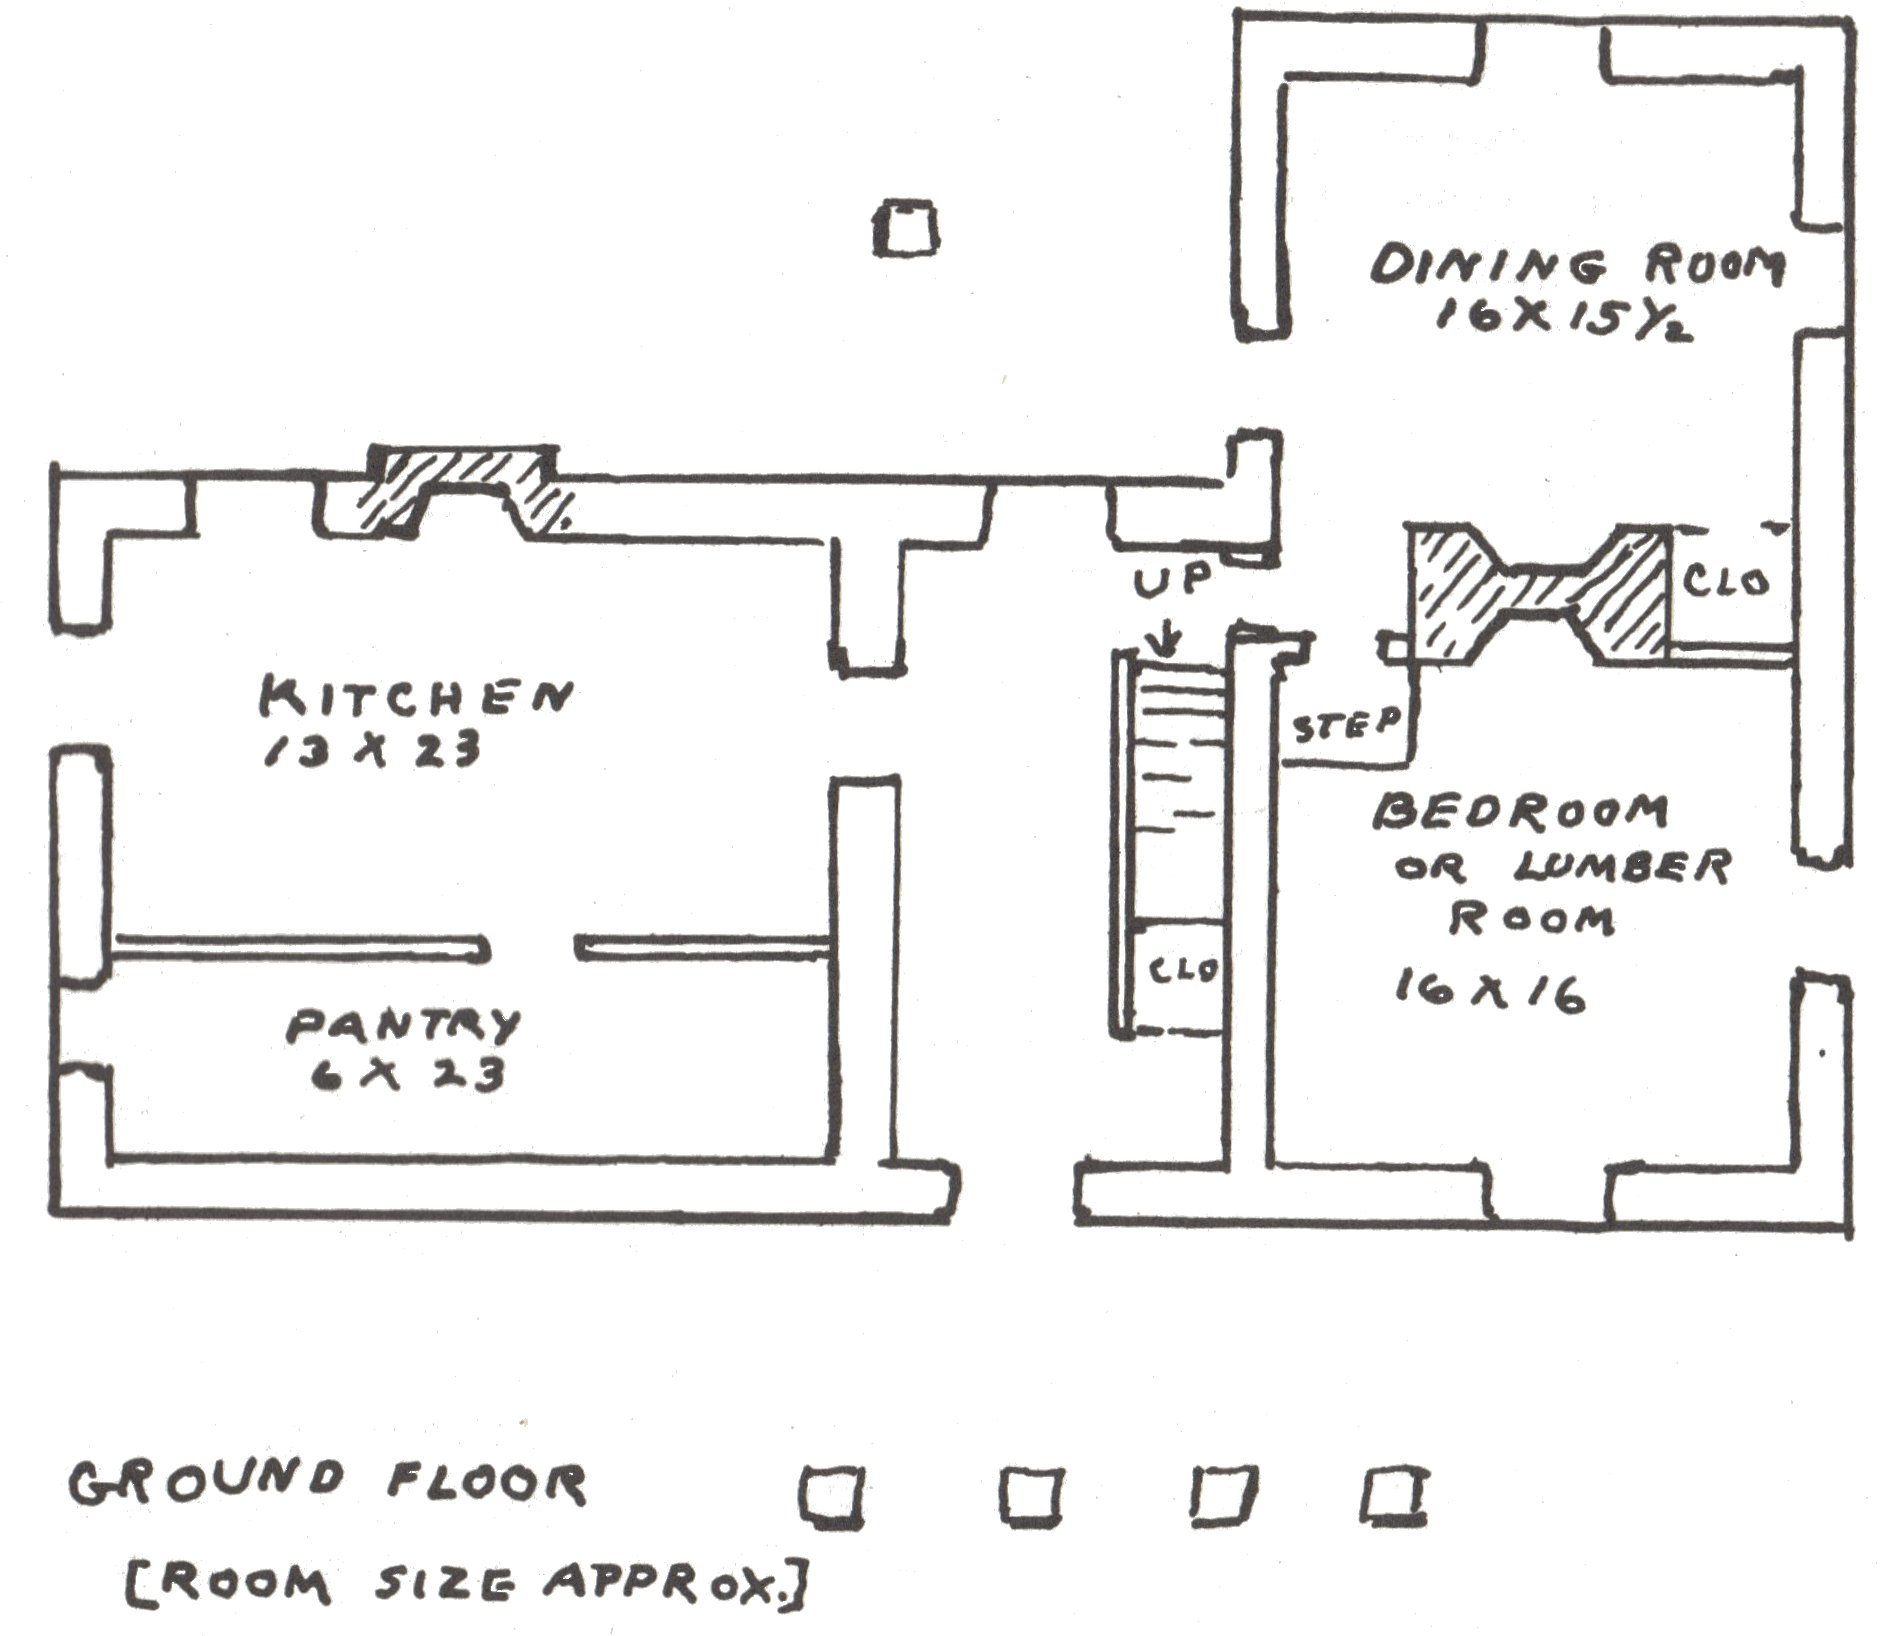 DINING ROOM
16 X 15 1/2
UP
CLO
KITCHEN
13 X 23
STEP
BEDROOM
OR LUMBER
ROOM
16 X 16
CLO
PANTRY
6 X 23
GROUND FLOOR
[ROOM SIZE APPROX.]